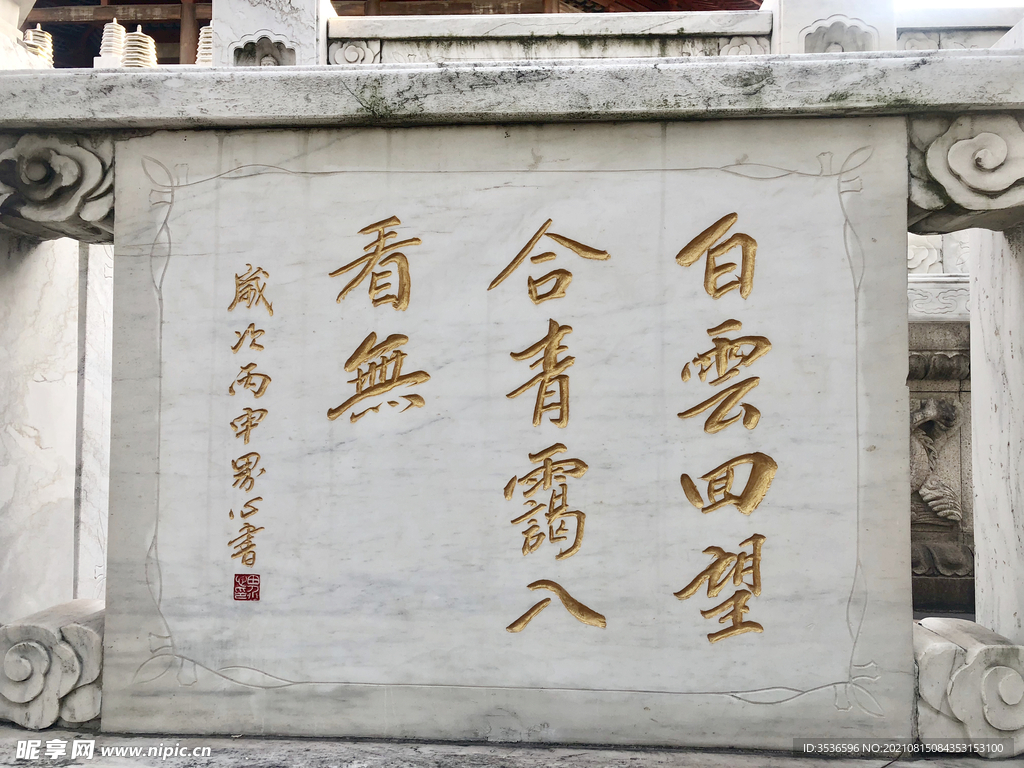 白雲回望
合青靄入
看無
歲次丙申界心書
昵享网 www.nipic.cn
ID:3536596 NO:20210815084353153100